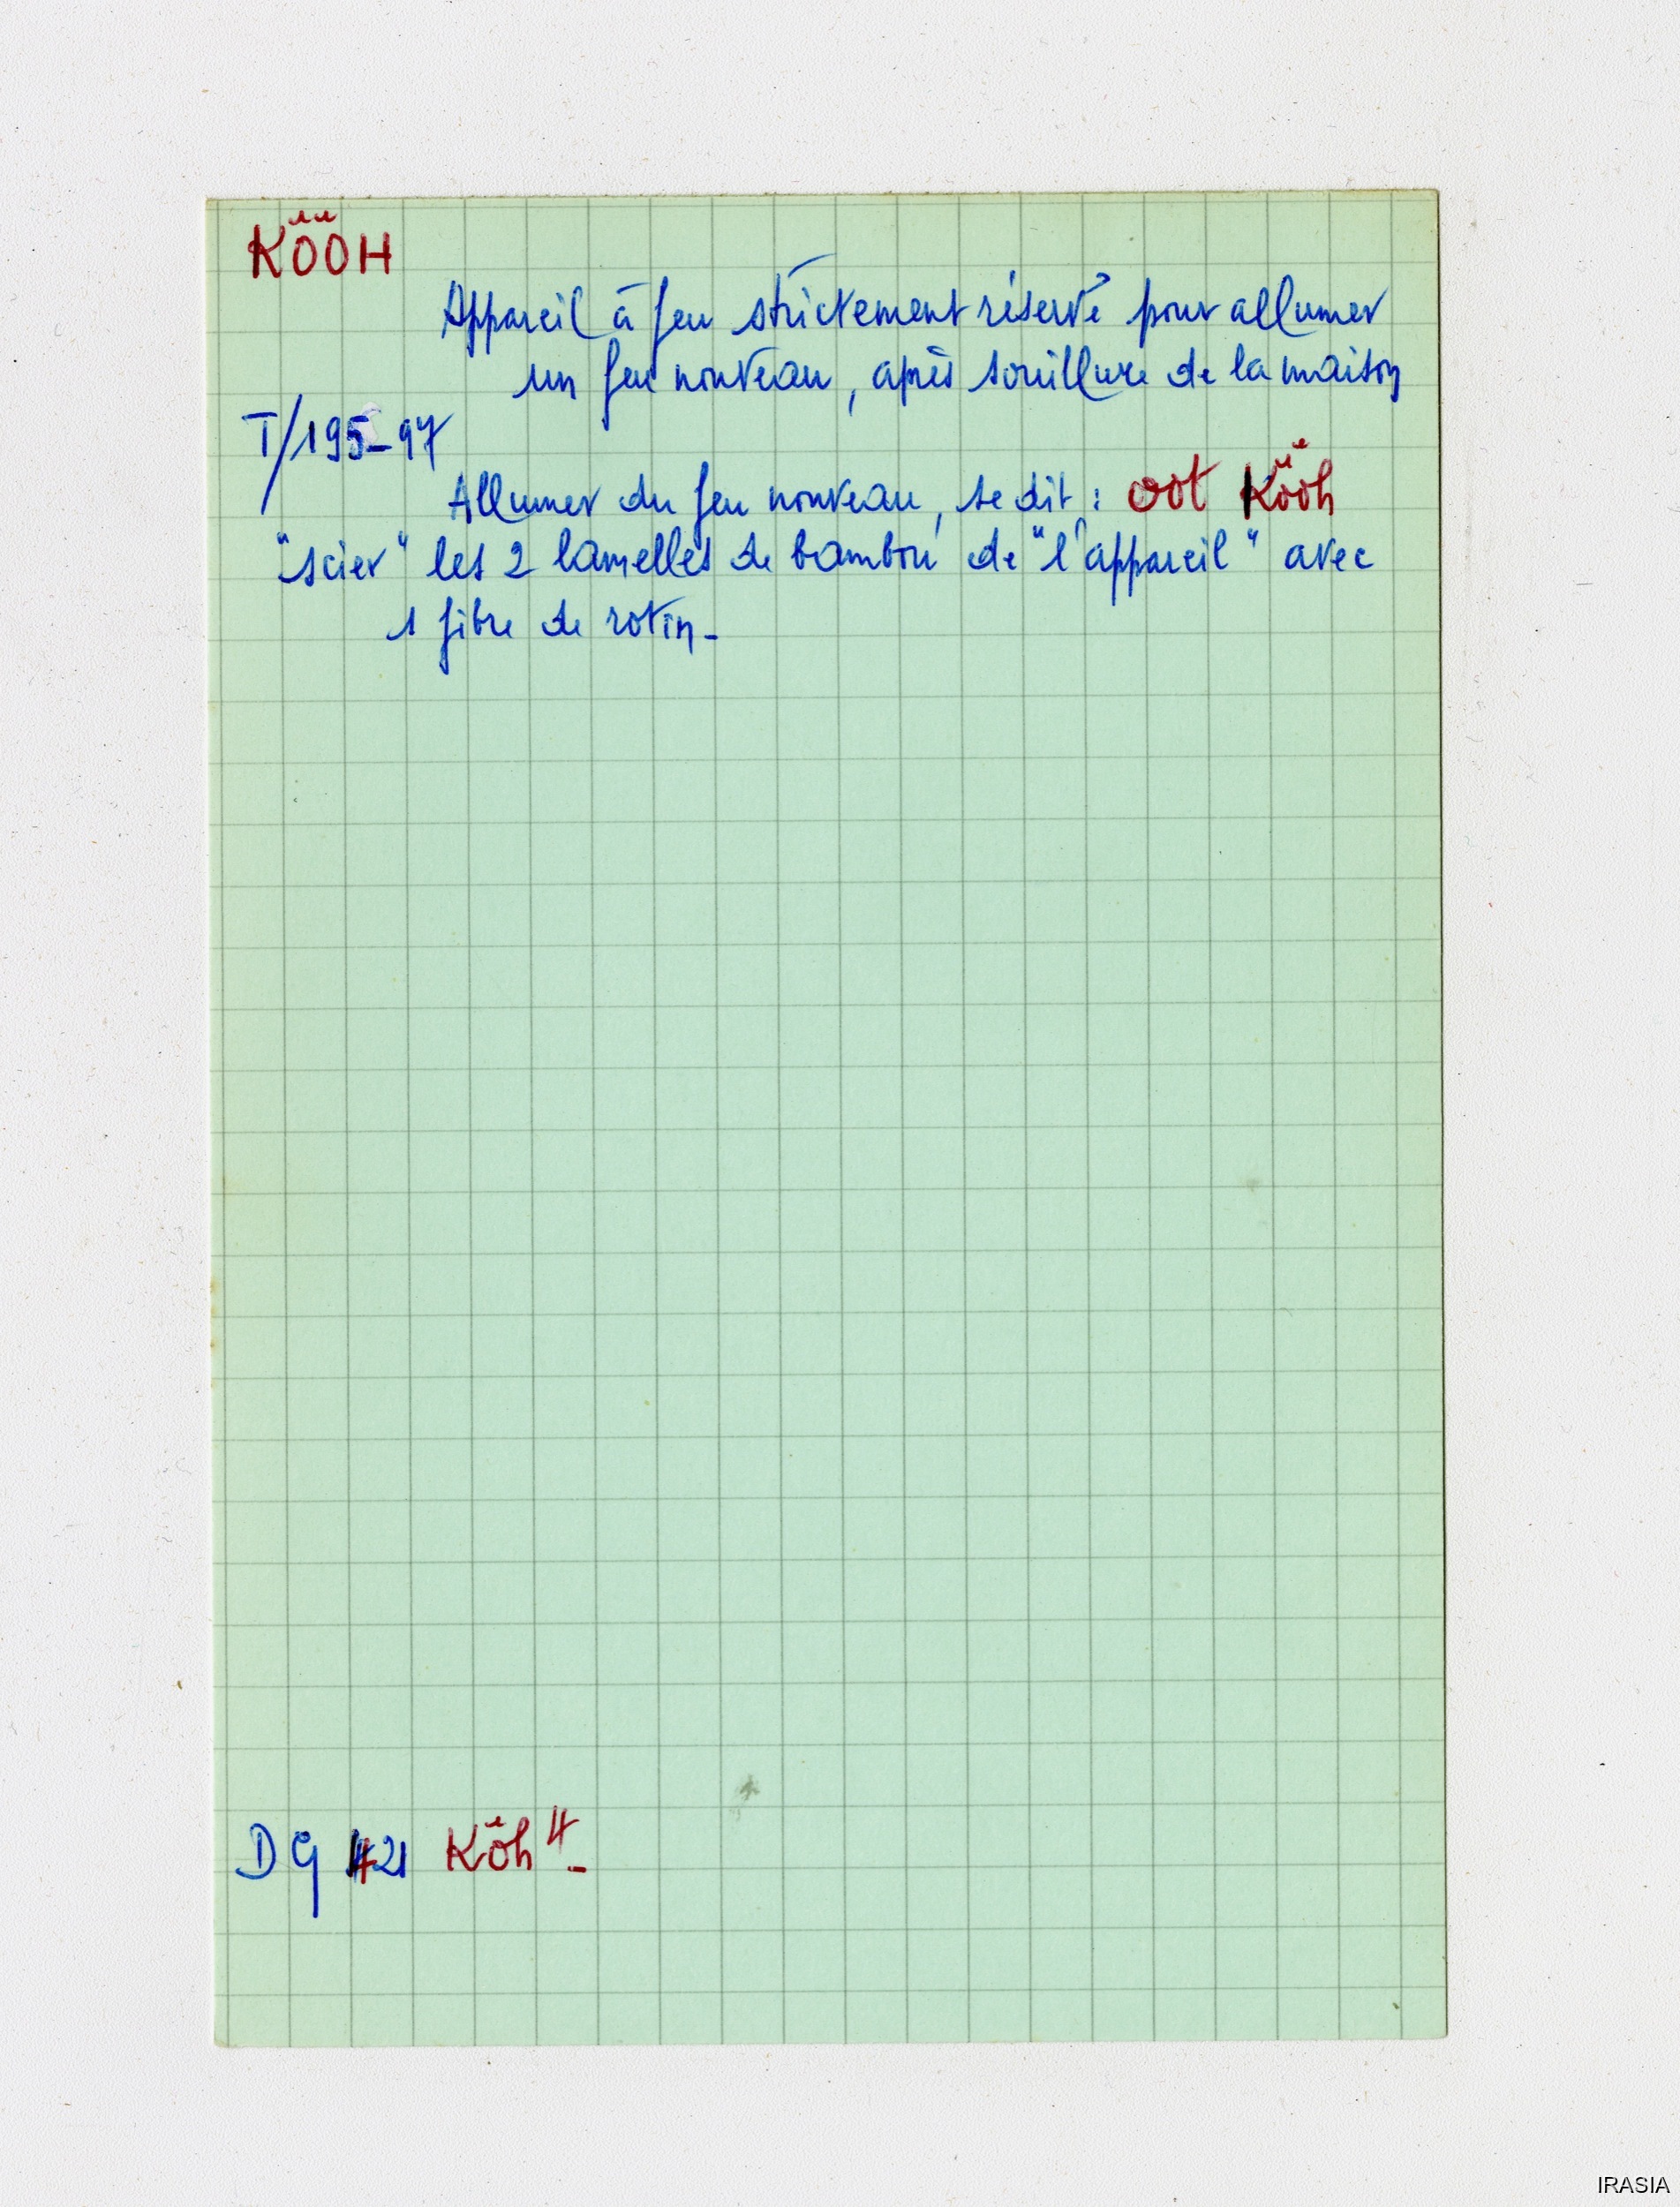 KÖÖH
Appareil à feu strictement réservé pour allumer
un feu nouveau, après souillure de la maison
T/195-97
Allumer du feu nouveau, se dit : oot Kööh
"scier" les 2 lamelles de bambou de "l'appareil" avec
1 fibre de rotin_
DG 421 Köh 4_
IRASIA